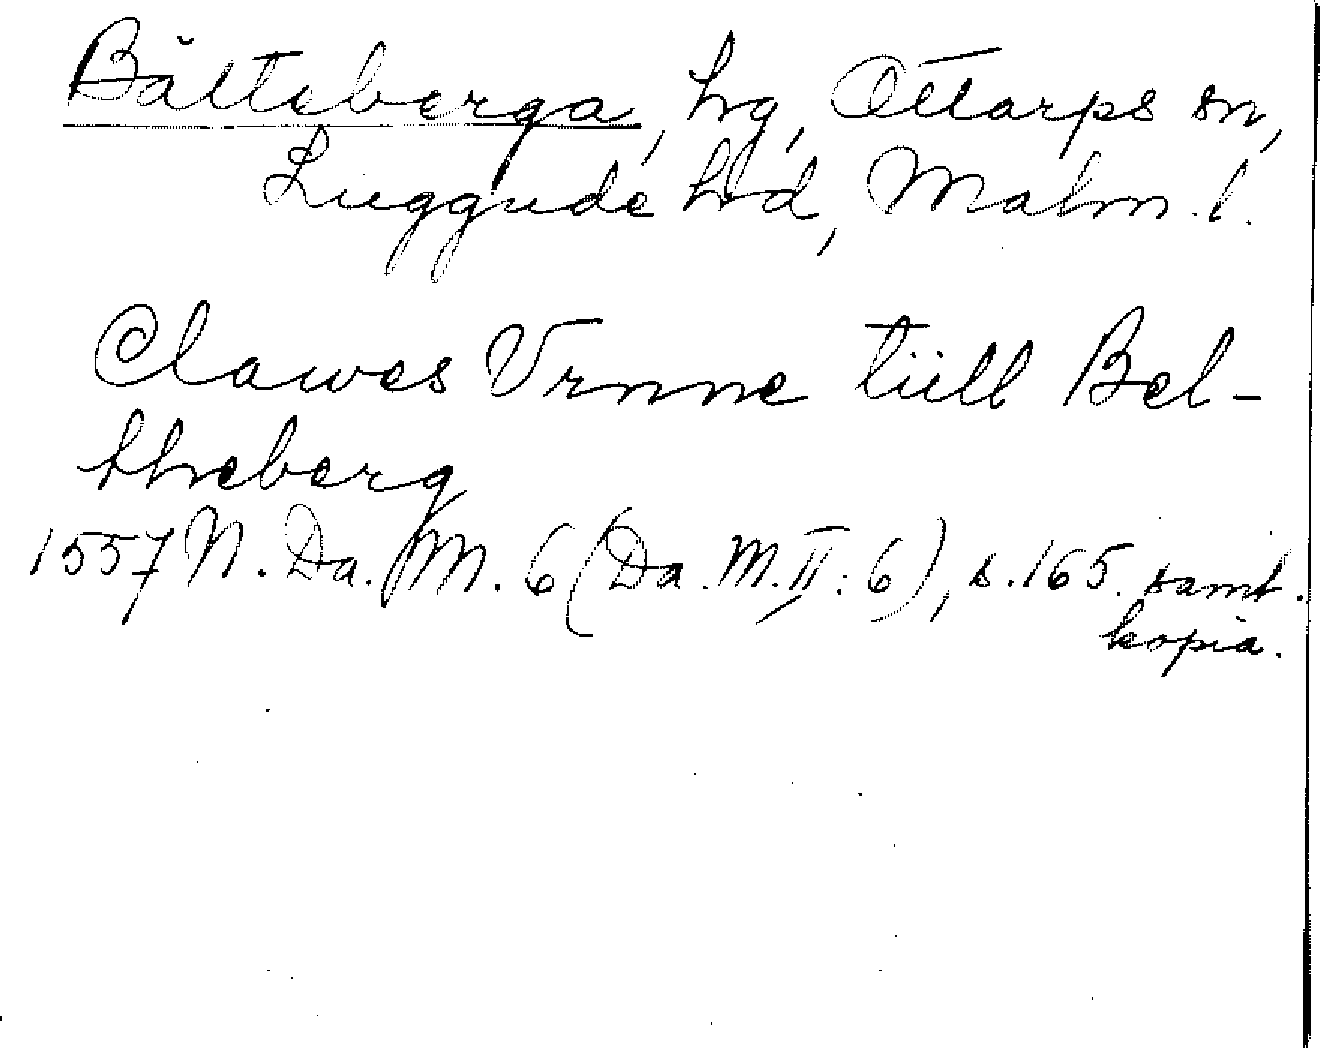 Bälteberga, hg, Ottarps sn,
Luggude hd, Malm. l.
Clawes Vrnne tiill Bel-
theberg
1557 N. Da. M. 6 (Da. M. II: 6), s. 165. samt.
kopia.